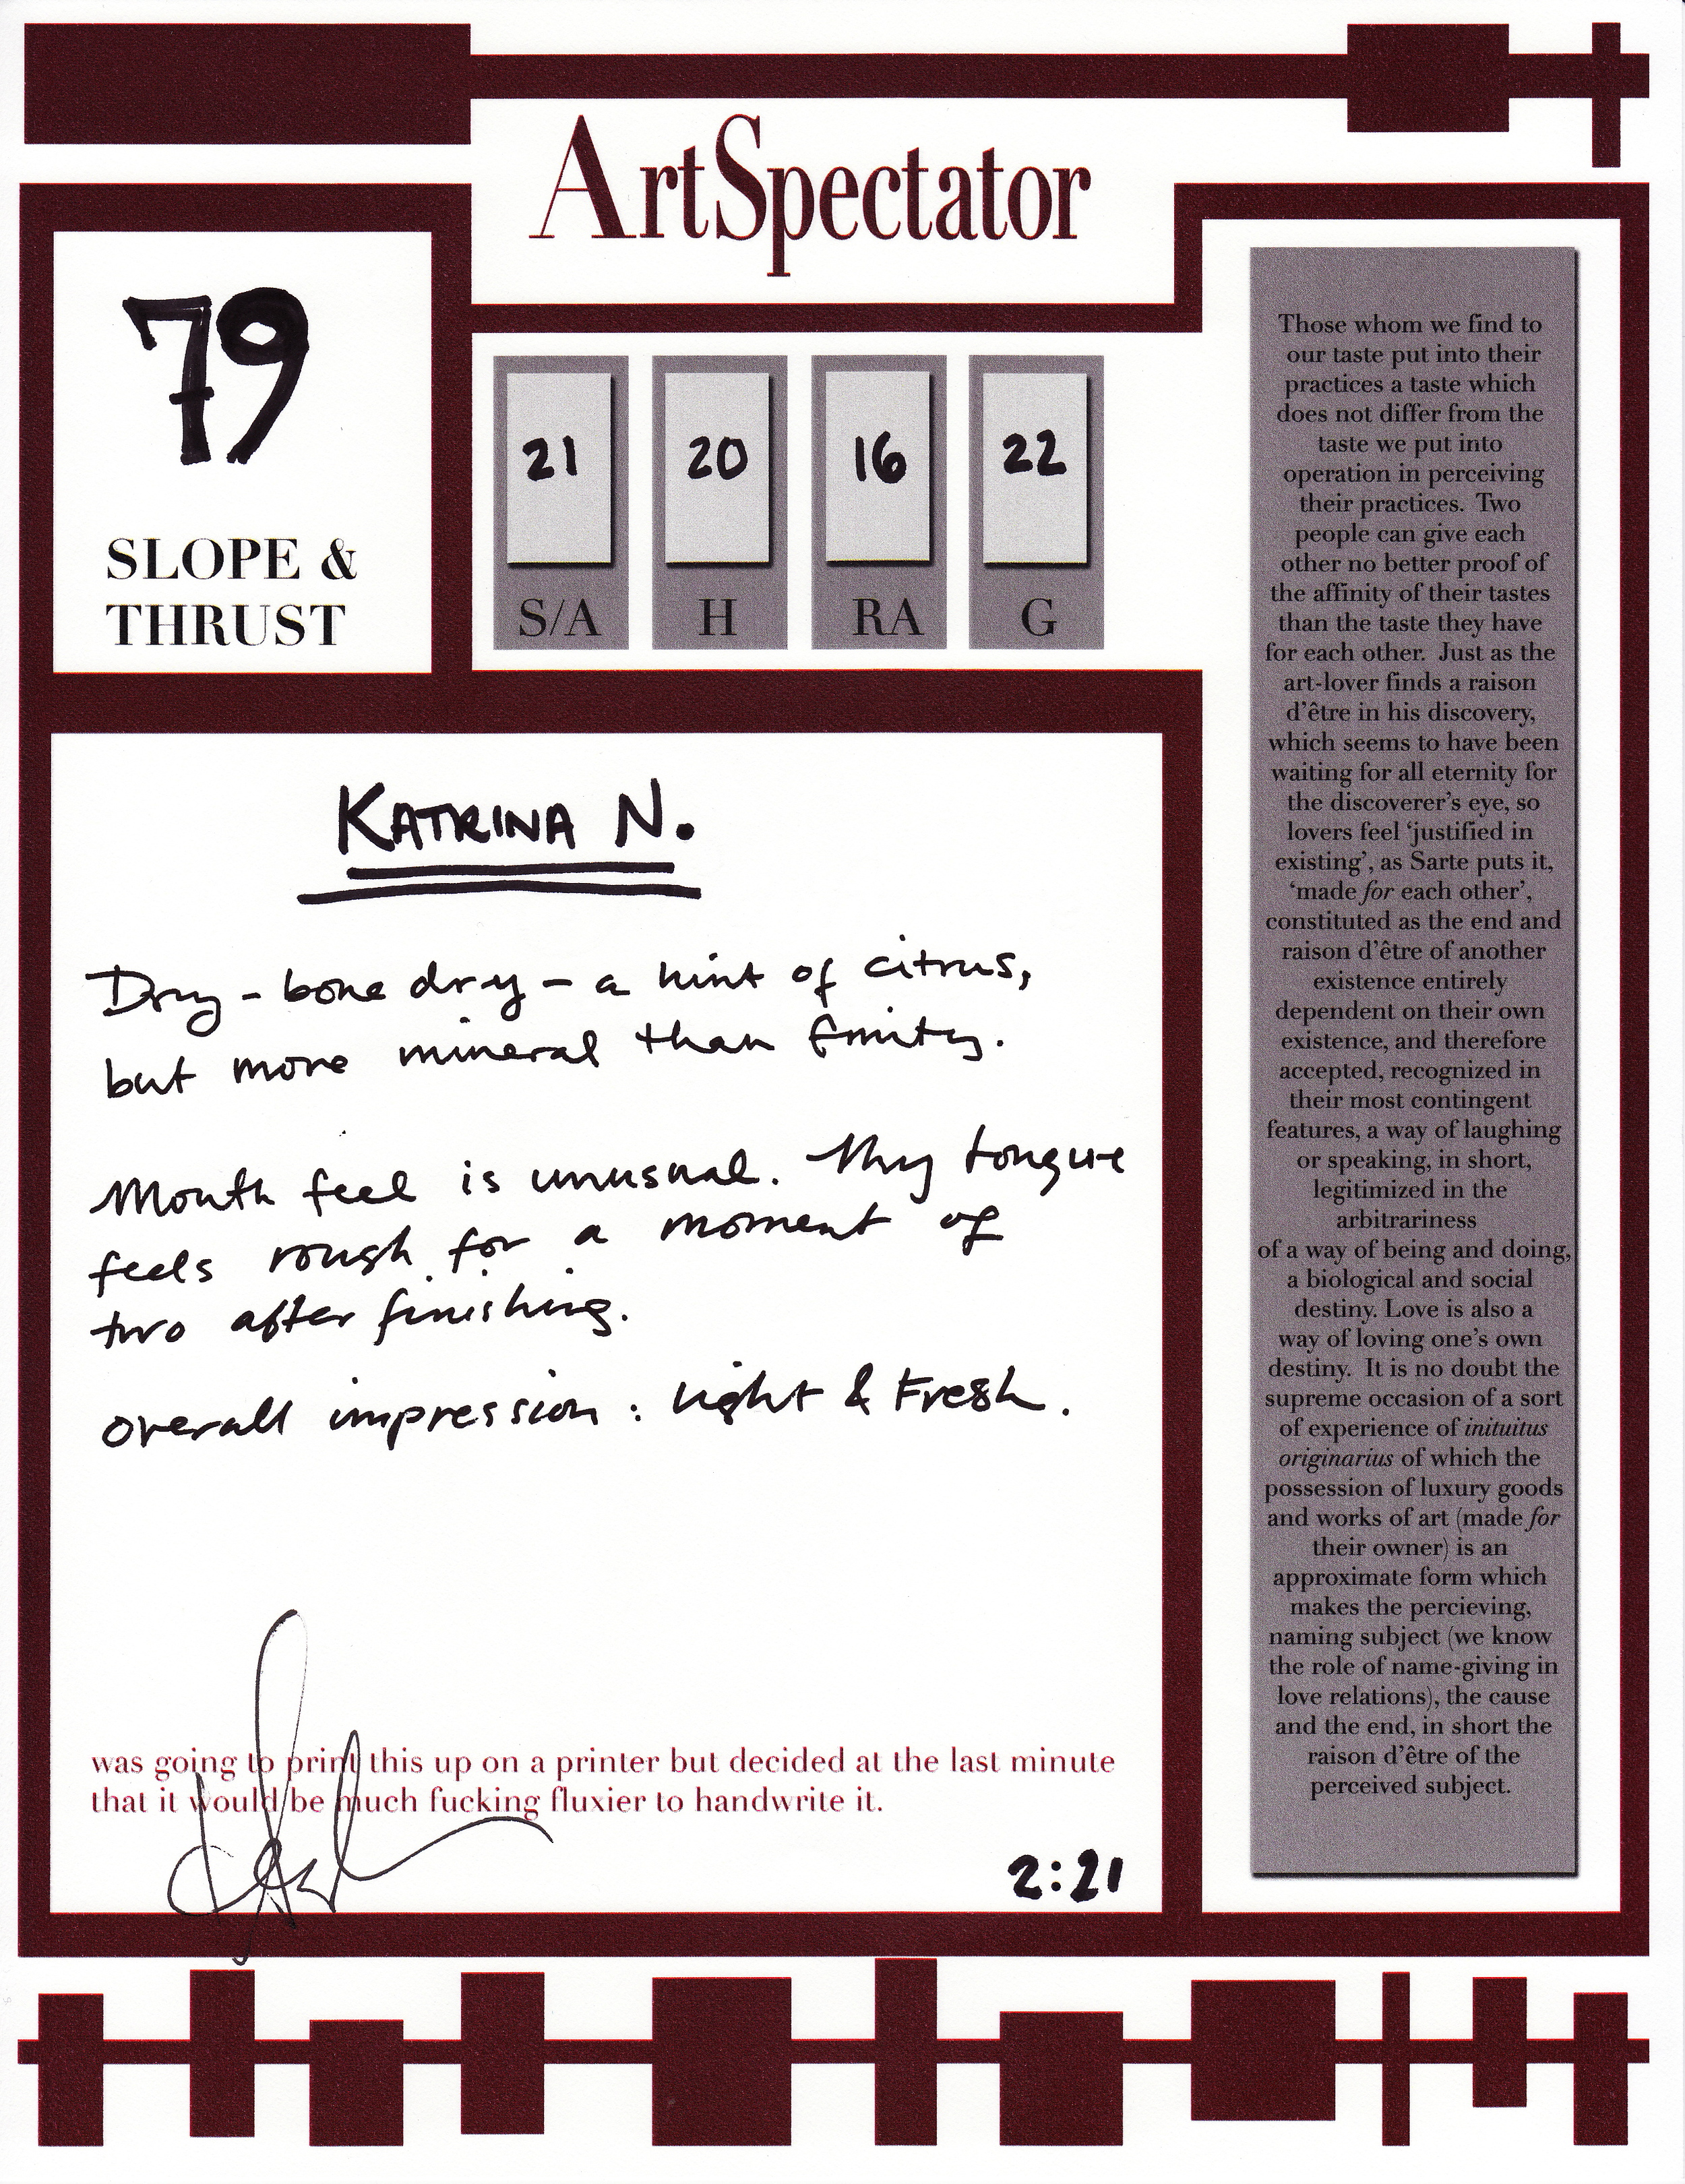 ArtSpectator
79
SLOPE &
THRUST
21
20
16
22
S/A
H
RA
G
KATRINA N.
Dry - bone dry - a hint of citrus,
but more mineral than fruity.
Mouth feel is unusual. My tongue
feels rough for a moment of
two after finishing.
overall impression: light & Fresh.
was going to print this up on a printer but decided at the last minute
that it would be much fucking fluxier to handwrite it.
2:21
Those whom we find to
our taste put into their
practices a taste which
does not differ from the
taste we put into
operation in perceiving
their practices. Two
people can give each
other no better proof of
the affinity of their tastes
than the taste they have
for each other. Just as the
art-lover finds a raison
d'être in his discovery,
which seems to have been
waiting for all eternity for
the discoverer's eye, so
lovers feel 'justified in
existing', as Sarte puts it,
'made for each other',
constituted as the end and
raison d'être of another
existence entirely
dependent on their own
existence, and therefore
accepted, recognized in
their most contingent
features, a way of laughing
or speaking, in short,
legitimized in the
arbitrariness
of a way of being and doing,
a biological and social
destiny. Love is also a
way of loving one's own
destiny. It is no doubt the
supreme occasion of a sort
of experience of inituitus
originarius of which the
possession of luxury goods
and works of art (made for
their owner) is an
approximate form which
makes the percieving,
naming subject (we know
the role of name-giving in
love relations), the cause
and the end, in short the
raison d'être of the
perceived subject.